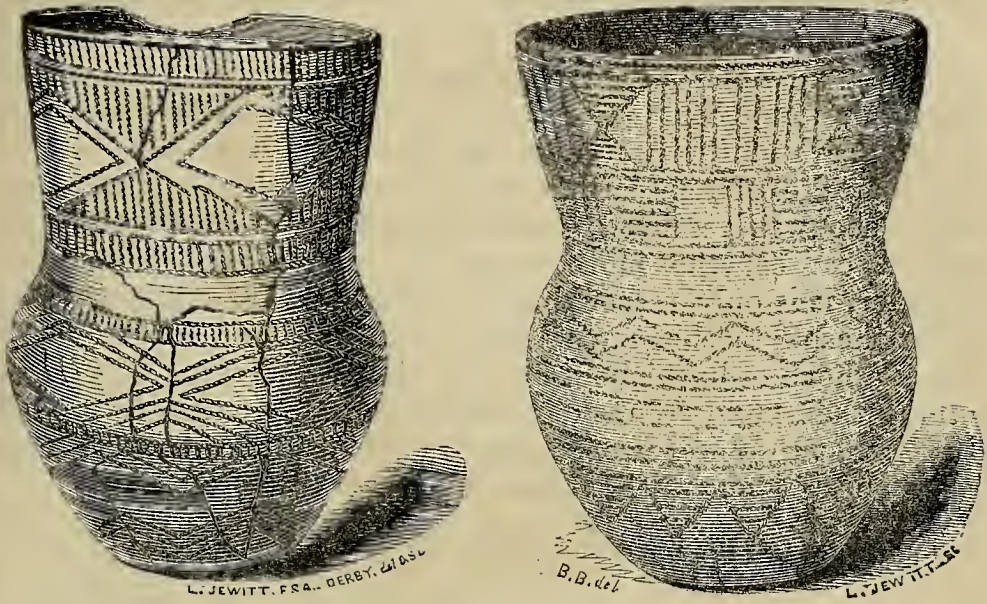 L. JEWITT. F.S.A.. DERBY. del & SC
B.B. del.
L. JEWITT. SC